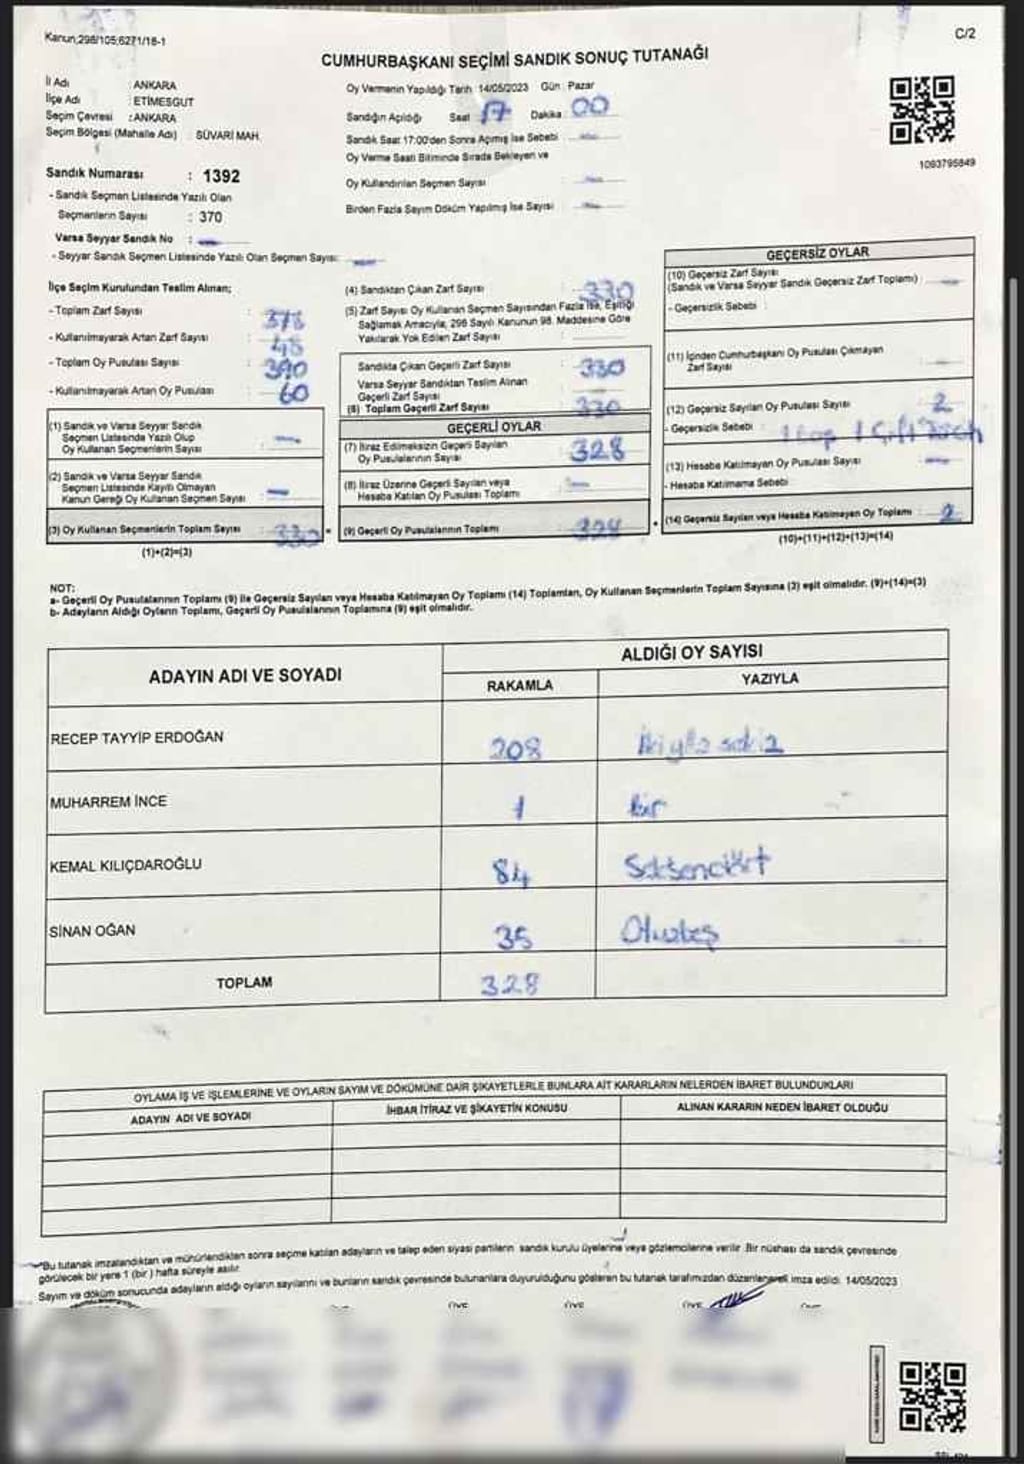 Kanun;298/105;6271/18-1
C/2
CUMHURBAŞKANI SEÇİMİ SANDIK SONUÇ TUTANAĞI
İl Adı : ANKARA
İlçe Adı : ETİMESGUT
Seçim Çevresi : ANKARA
Seçim Bölgesi (Mahalle Adı) : SÜVARİ MAH.
Oy Vermenin Yapıldığı Tarih :14/05/2023 Gün : Pazar
Sandığın Açıldığı Saat 17 Dakika : 00
Sandık Saat 17:00'den Sonra Açımış İse Sebebi
Oy Verme Saati Bitiminde Sırada Bekleyen ve
Oy Kullandırılan Seçmen Sayısı
Birden Fazla Sayım Döküm Yapılmış İse Sayısı
1093795849
Sandık Numarası : 1392
- Sandık Seçmen Listesinde Yazılı Olan
Seçmenlerin Sayısı : 370
Varsa Seyyar Sandık No :
- Seyyar Sandık Seçmen Listesinde Yazılı Olan Seçmen Sayısı:
İlçe Seçim Kurulundan Teslim Alınan;
- Toplam Zarf Sayısı : 378
- Kullanılmayarak Artan Zarf Sayısı : 48
- Toplam Oy Pusulası Sayısı : 390
- Kullanılmayarak Artan Oy Pusulası : 60
(1) Sandık ve Varsa Seyyar Sandık
Seçmen Listesinde Yazılı Olup
Oy Kullanan Seçmenlerin Sayısı
(2) Sandık ve Varsa Seyyar Sandık
Seçmen Listesinde Kayıtlı Olmayan
Kanun Gereği Oy Kullanan Seçmen Sayısı
(3) Oy Kullanan Seçmenlerin Toplam Sayısı : 330
(1)+(2)=(3)
(4) Sandıktan Çıkan Zarf Sayısı : 330
(5) Zarf Sayısı Oy Kullanan Seçmen Sayısından Fazla İse, Eşitliği
Sağlamak Amacıyla, 298 Sayılı Kanunun 98. Maddesine Göre
Yakılarak Yok Edilen Zarf Sayısı
Sandıkta Çıkan Geçerli Zarf Sayısı : 330
Varsa Seyyar Sandıktan Teslim Alınan
Geçerli Zarf Sayısı
(6) Toplam Geçerli Zarf Sayısı : 330
GEÇERLİ OYLAR
(7) İtiraz Edilmeksizin Geçerli Sayılan
Oy Pusulalarının Sayısı : 328
(8) İtiraz Üzerine Geçerli Sayılan veya
Hesaba Katılan Oy Pusulası Toplamı
(9) Geçerli Oy Pusulalarının Toplamı : 328
GEÇERSİZ OYLAR
(10) Geçersiz Zarf Sayısı
(Sandık ve Varsa Seyyar Sandık Geçersiz Zarf Toplamı) :
- Geçersizlik Sebebi :
(11) İçinden Cumhurbaşkanı Oy Pusulası Çıkmayan
Zarf Sayısı
(12) Geçersiz Sayılan Oy Pusulası Sayısı : 2
- Geçersizlik Sebebi : 1 1 Çift
(13) Hesaba Katılmayan Oy Pusulası Sayısı :
- Hesaba Katılmama Sebebi
(14) Geçersiz Sayılan veya Hesaba Katılmayan Oy Toplamı : 2
(10)+(11)+(12)+(13)=(14)
NOT:
a- Geçerli Oy Pusulalarının Toplamı (9) ile Geçersiz Sayılan veya Hesaba Katılmayan Oy Toplamı (14) Toplamları, Oy Kullanan Seçmenlerin Toplam Sayısına (3) eşit olmalıdır. (9)+(14)=(3)
b- Adayların Aldığı Oyların Toplamı, Geçerli Oy Pusulalarının Toplamına (9) eşit olmalıdır.
ADAYIN ADI VE SOYADI
ALDIĞI OY SAYISI
RAKAMLA YAZIYLA
RECEP TAYYİP ERDOĞAN 208 İkiyüz sekiz
MUHARREM İNCE 1 bir
KEMAL KILIÇDAROĞLU 84 Seksendört
SİNAN OĞAN 35 Otuzbeş
TOPLAM 328
OYLAMA İŞ VE İŞLEMLERİNE VE OYLARIN SAYIM VE DÖKÜMÜNE DAİR ŞİKAYETLERLE BUNLARA AİT KARARLARIN NELERDEN İBARET BULUNDUKLARI
ADAYIN ADI VE SOYADI İHBAR İTİRAZ VE ŞİKAYETİN KONUSU ALINAN KARARIN NEDEN İBARET OLDUĞU
*Bu tutanak imzalandıktan ve mühürlendikten sonra seçime katılan adayların ve talep eden siyasi partilerin sandık kurulu üyelerine veya gözlemcilerine verilir. Bir nüshası da sandık çevresinde
görülecek bir yere 1 (bir ) hafta süreyle asılır.
Sayım ve döküm sonucunda adayların aldığı oyların sayılarını ve bunların sandık çevresinde bulunanlara duyurulduğunu gösteren bu tutanak tarafımızdan düzenlenerek imza edildi. 14/05/2023
ÜYE ÜYE ÜYE